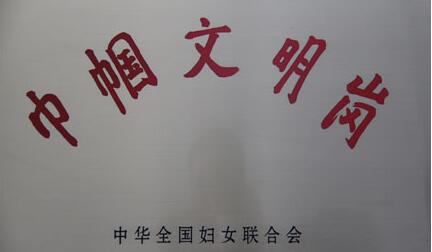 巾帼文明岗
中华全国妇女联合会